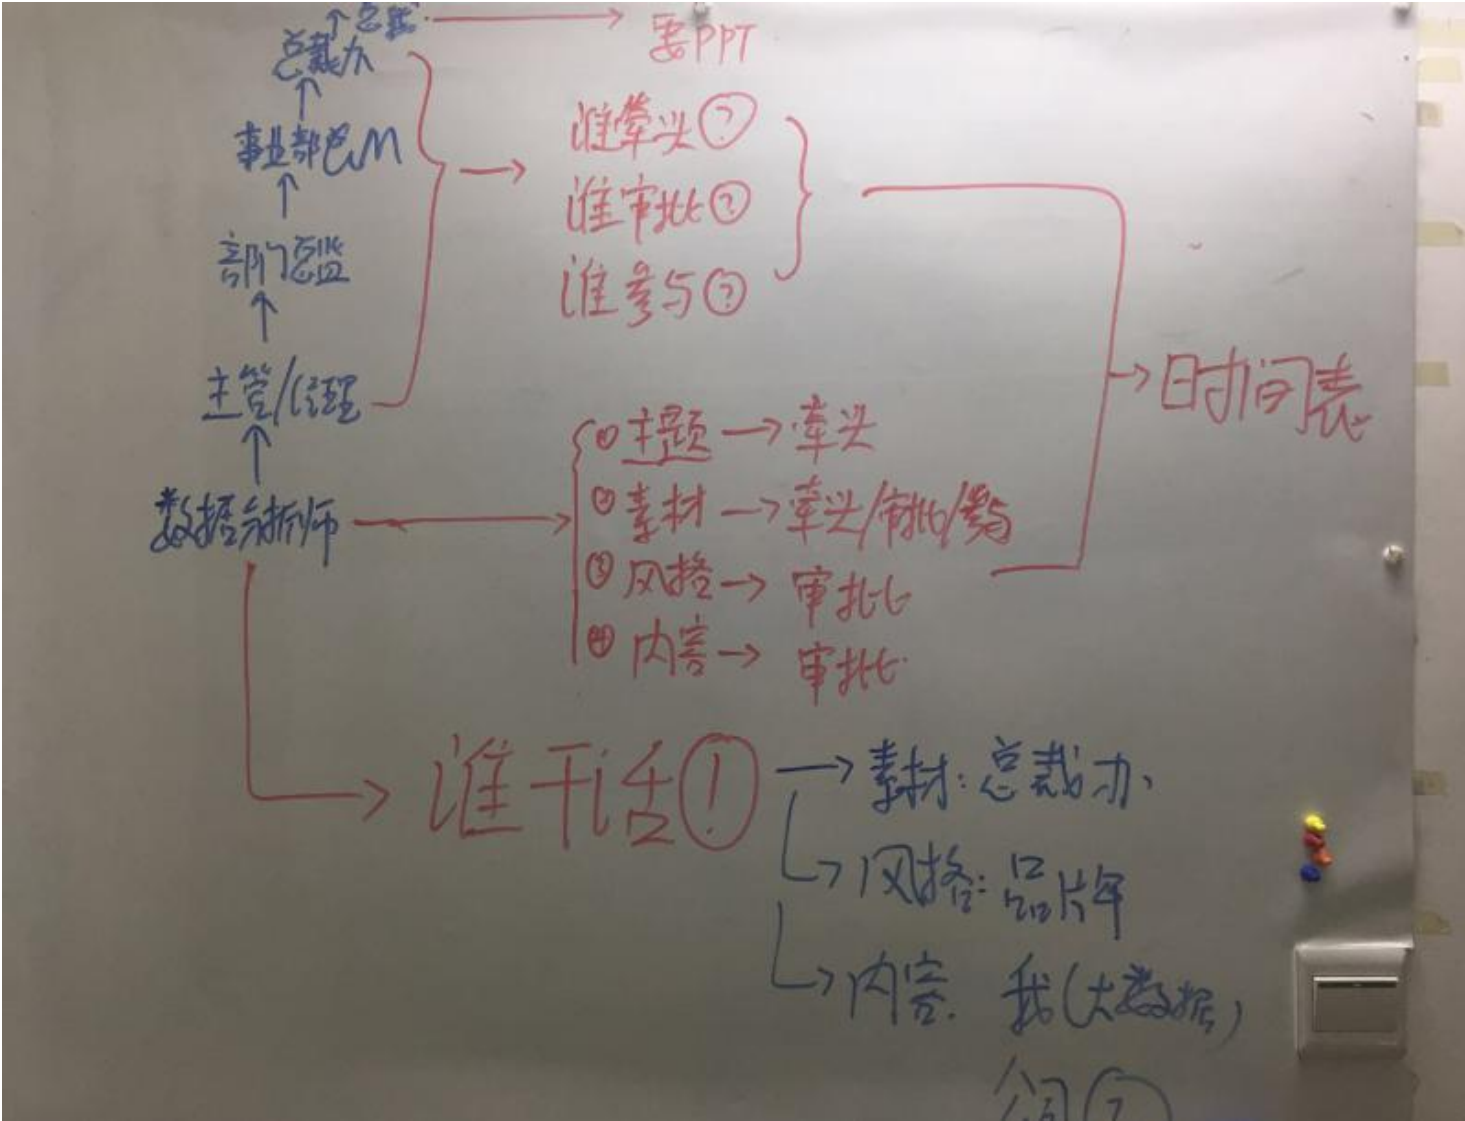 总裁
要PPT
总裁办
事业部总M
部门总监
主管/经理
数据分析师
谁牵头?
谁审批?
谁参与?
时间表
①主题→牵头
②素材→牵头/审批/参与
③风格→审批
④内容→审批
谁干活!
素材:总裁办
风格:品牌
内容.我(大数据)